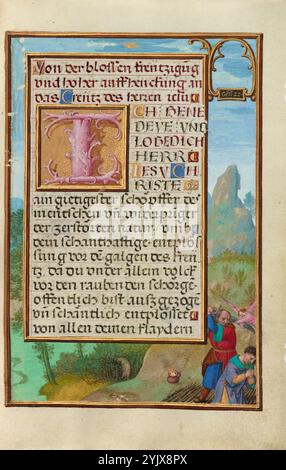 Von der blossen kreutzigūg
und hoher auffhenckung an
das Creutz des herzen iesu
Gen. 22
ICH BENE
DEYE VND
LOBE DICH
HERR
IESV CH
RISTE
ain giettigester schöpffer des
menschen un widerpringer
der zerstorten natur umb
dein schanthafftige entplos
sung vor dē galgen des kreu
tz, da du vnder allem volck
vor den rauben den schorge
offentlich bist auszgezogē
vn schantlich entplosset
von allen deinen klaydern